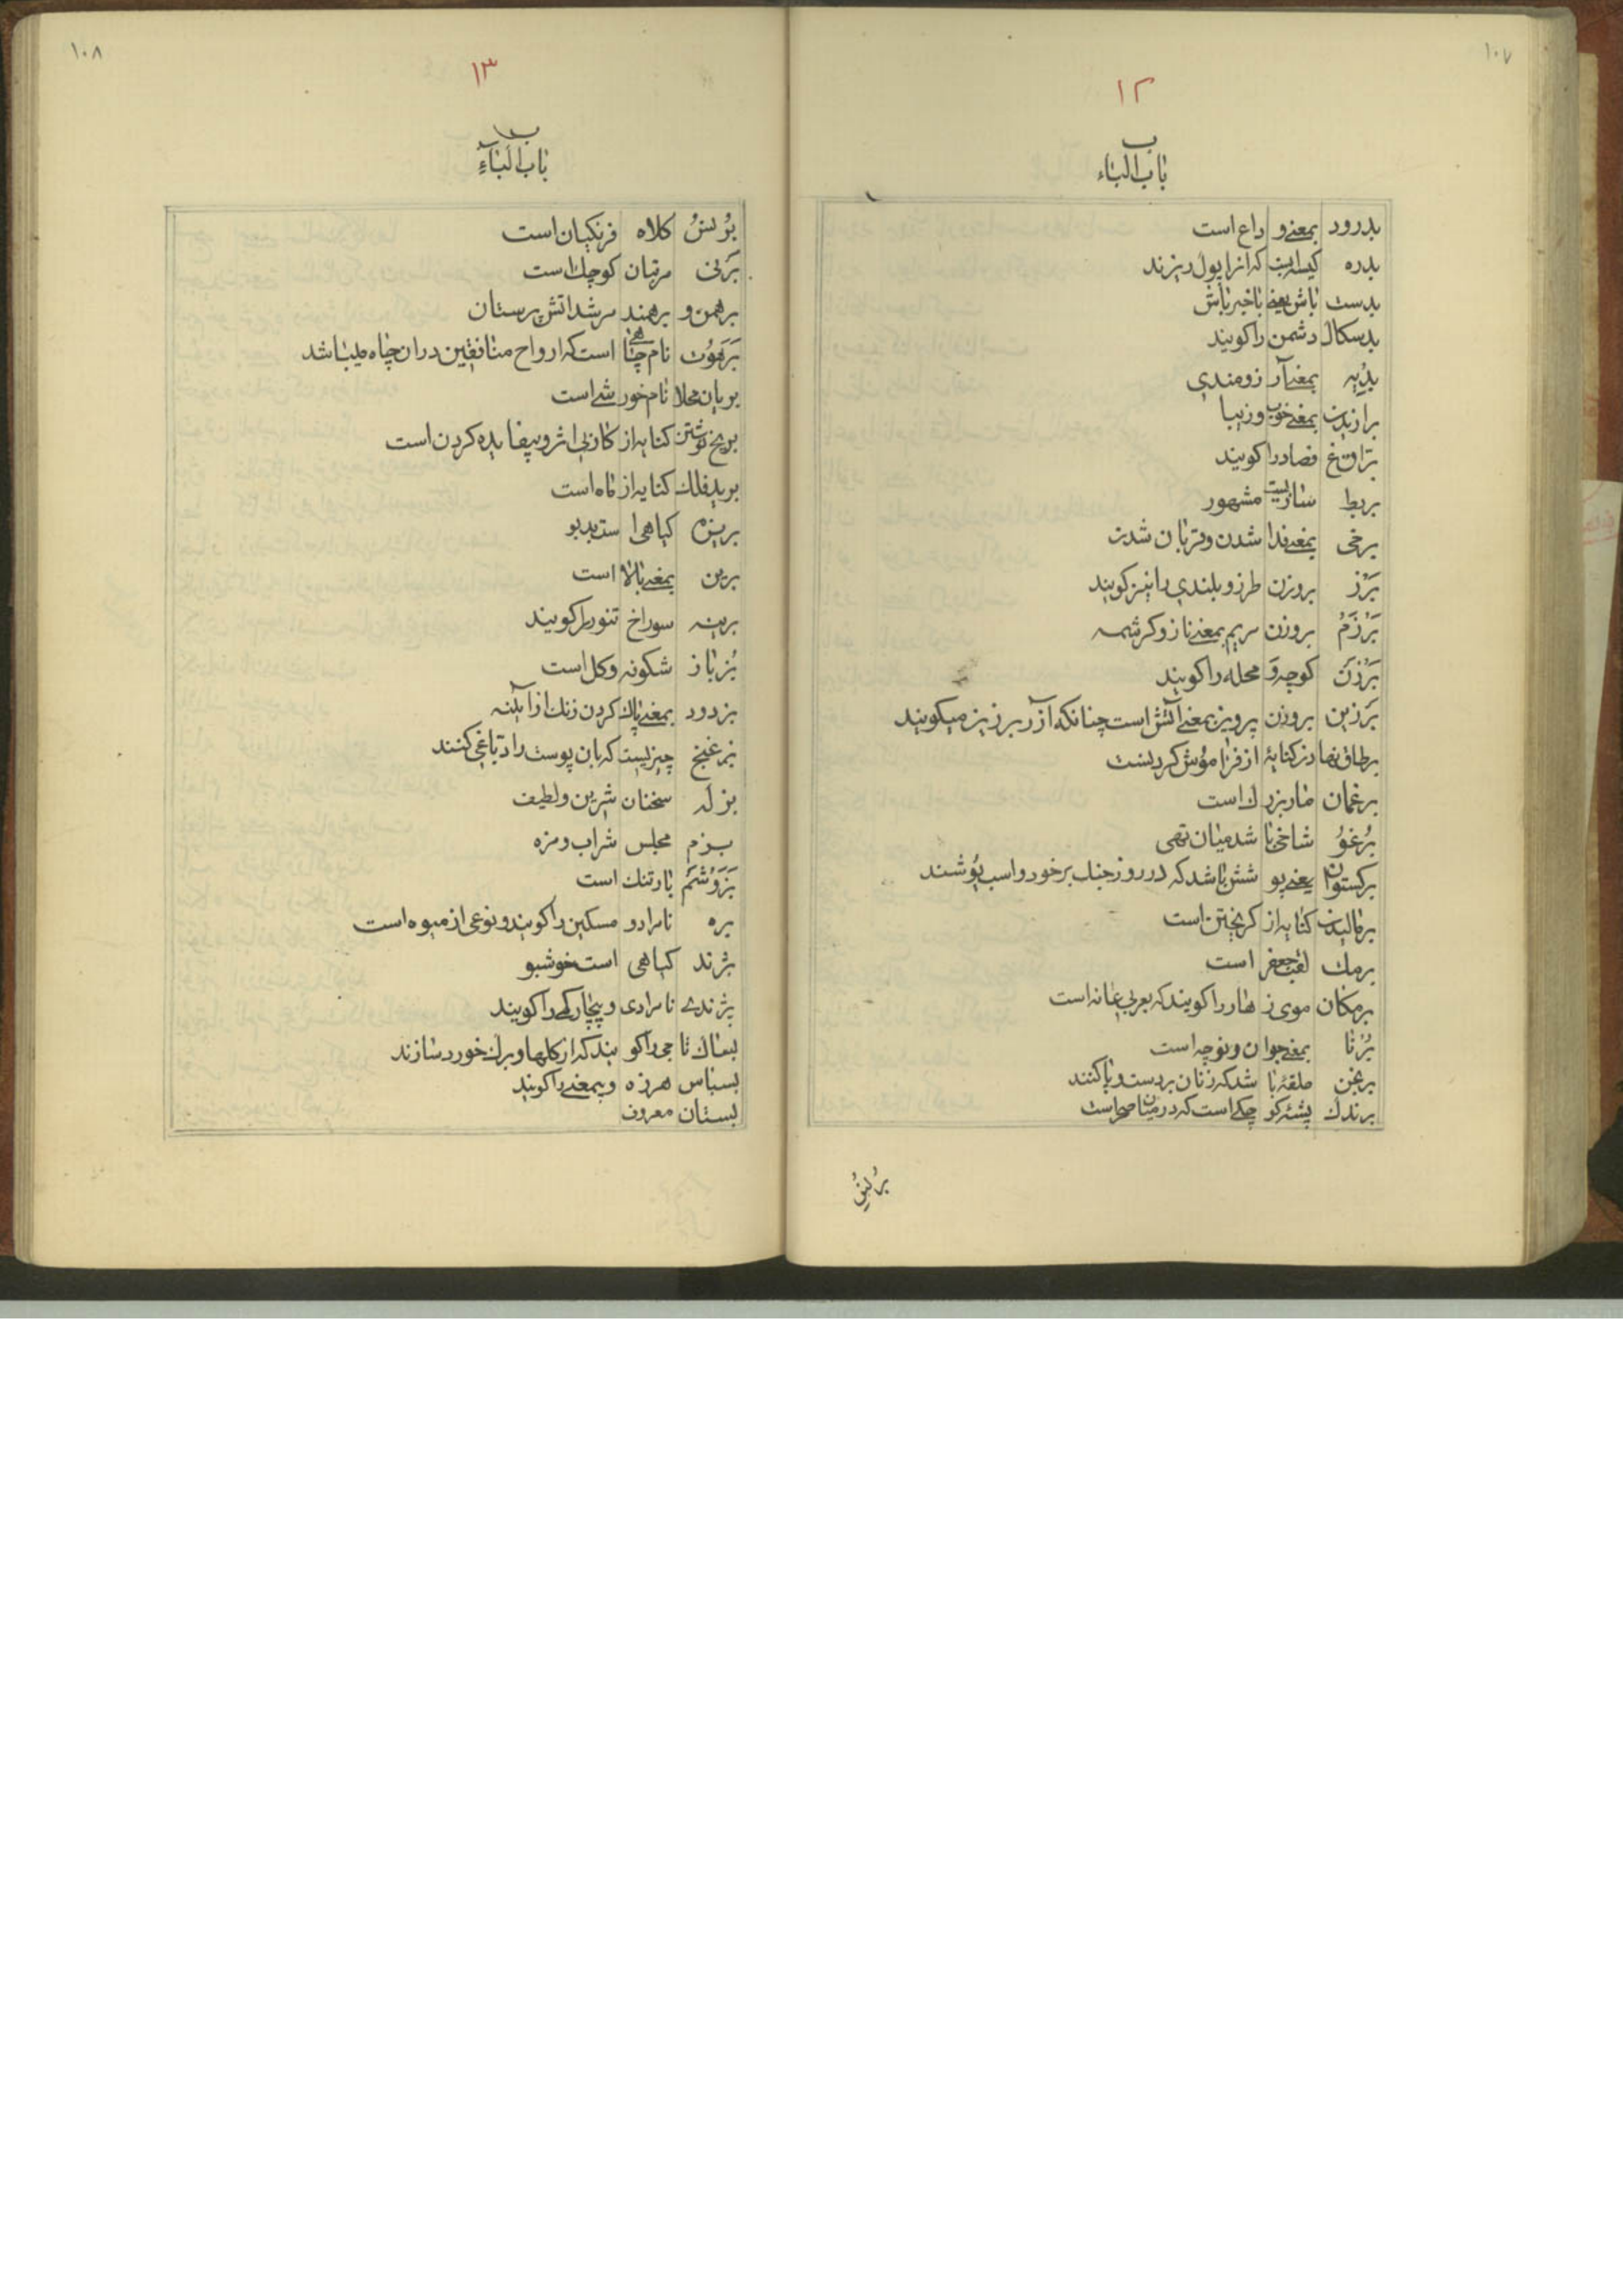 ۱۰۷
۱۲
ب
باب الباء
بدرود بمعنے وداع است
بدره کیسه ایست که انرا پول ریزند
بدست باش یعنے باخبر باش
بدسکال دشمن را کویند
بدُیه بمعنے آرزومندی
برازیدن بمعنے خوب و زیبا
بَراق فصاد را کویند
بربط سازیست مشهور
برخی بمعنے فدا شدن و قربان شدن
بَرْز بروزن طرز و بلندی را نیز کویند
بَرْزَمُ بروزن مریم بمعنے ناز و کرشمه
بَرْزَنَ کوچه و محله را کویند
بَرْزین بروزن پرویز بمعنے آتش است چنانکه آزر برزیز میکویند
برطاق نهادن کنایهٔ از فراموش کردنست
برغمان مار بزرك است
بُرْغوُ شاخی باشد میان تهی
برکستوان یعنے پوشش باشد که در روز جنك بر خود و اسب پوشند
برمالیدن کنایه از کریختن است
برمك لقب جعفر است
برمکان موی زهار را کویند که بعربی عانه است
بُرْنا بمعنے جوان و نوچه است
برنجن حلقهٔ باشد که زنان بر دست و پا کنند
برندك پشتهٔ کوچکے است که در میان صحراست
بُرنُس
۱۰۸
۱۳
ب
باب الباء
بُرْنسُ کلاه فرنکیان است
بَرْنی مرتبان کوچك است
برهمن و برهمند مرشد اتش پرستان
بَرَهوُت نام چاهی است که ارواح منافقین دران چاه میباشد
بریان محلا نام خورشے است
بر یخ نوشتن کنایه از کار بی اثر و بیفایده کردن است
برید فلك کنایه از ماه است
بریزه کیاهی است بدبو
برین بمعنے بالا است
برینه سوراخ تنور را کویند
بُزباز شکوفه و کل است
بزدود بمعنے پاك کردن زنك از آیینه
بزغنج چیزیست که بان پوست را دباغی کنند
بزله سخنان شیرین و لطیف
بزم مجلس شراب و مزه
بَزَوُشَمُ بارتنك است
بزه نامراد و مسکین را کویند و نوعی از میوه است
بژند کیاهی است خوشبو
بژندے نامرادی و بیچارکے را کویند
بساك تاجی را کویند که از کلها و برك خورد سازند
بسباس هرزه و بیمعنے را کویند
بستان معروف